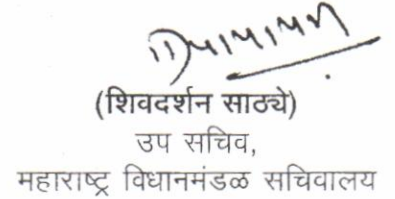 (शिवदर्शन साठ्ये)
उप सचिव,
महाराष्ट्र विधानमंडळ सचिवालय